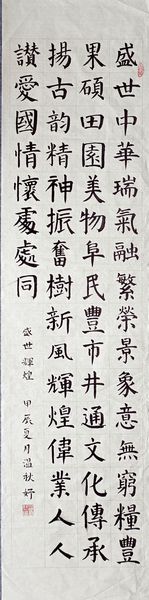 盛世中華瑞氣融繁榮景象意無窮糧豐
果碩田園美物阜民豐市井通文化傳承
揚古韵精神振奮樹新風輝煌偉業人人
讃愛國情懷處處同
盛世輝煌 甲辰夏月溫秋妤